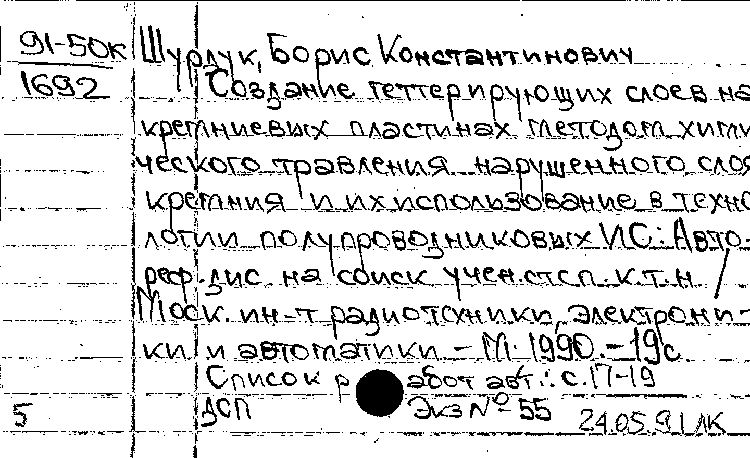 91-50к
1692
Шурлук, Борис Константинович
Создание геттерирующих слоев на
кремниевых пластинах методом хими
ческого травления нарушенного слоя
кремния и их использование в техно
логии полупроводниковых ИС: Авто-
реф. дис. на соиск учен. степ. к.т.н /
Моск. ин-т радиотехники, электрони-
ки и автоматики. - М. 1990. - 19с
Список работ авт.: с. 17-19
5 ДСП Экз № 55 24.05.91 ЛК